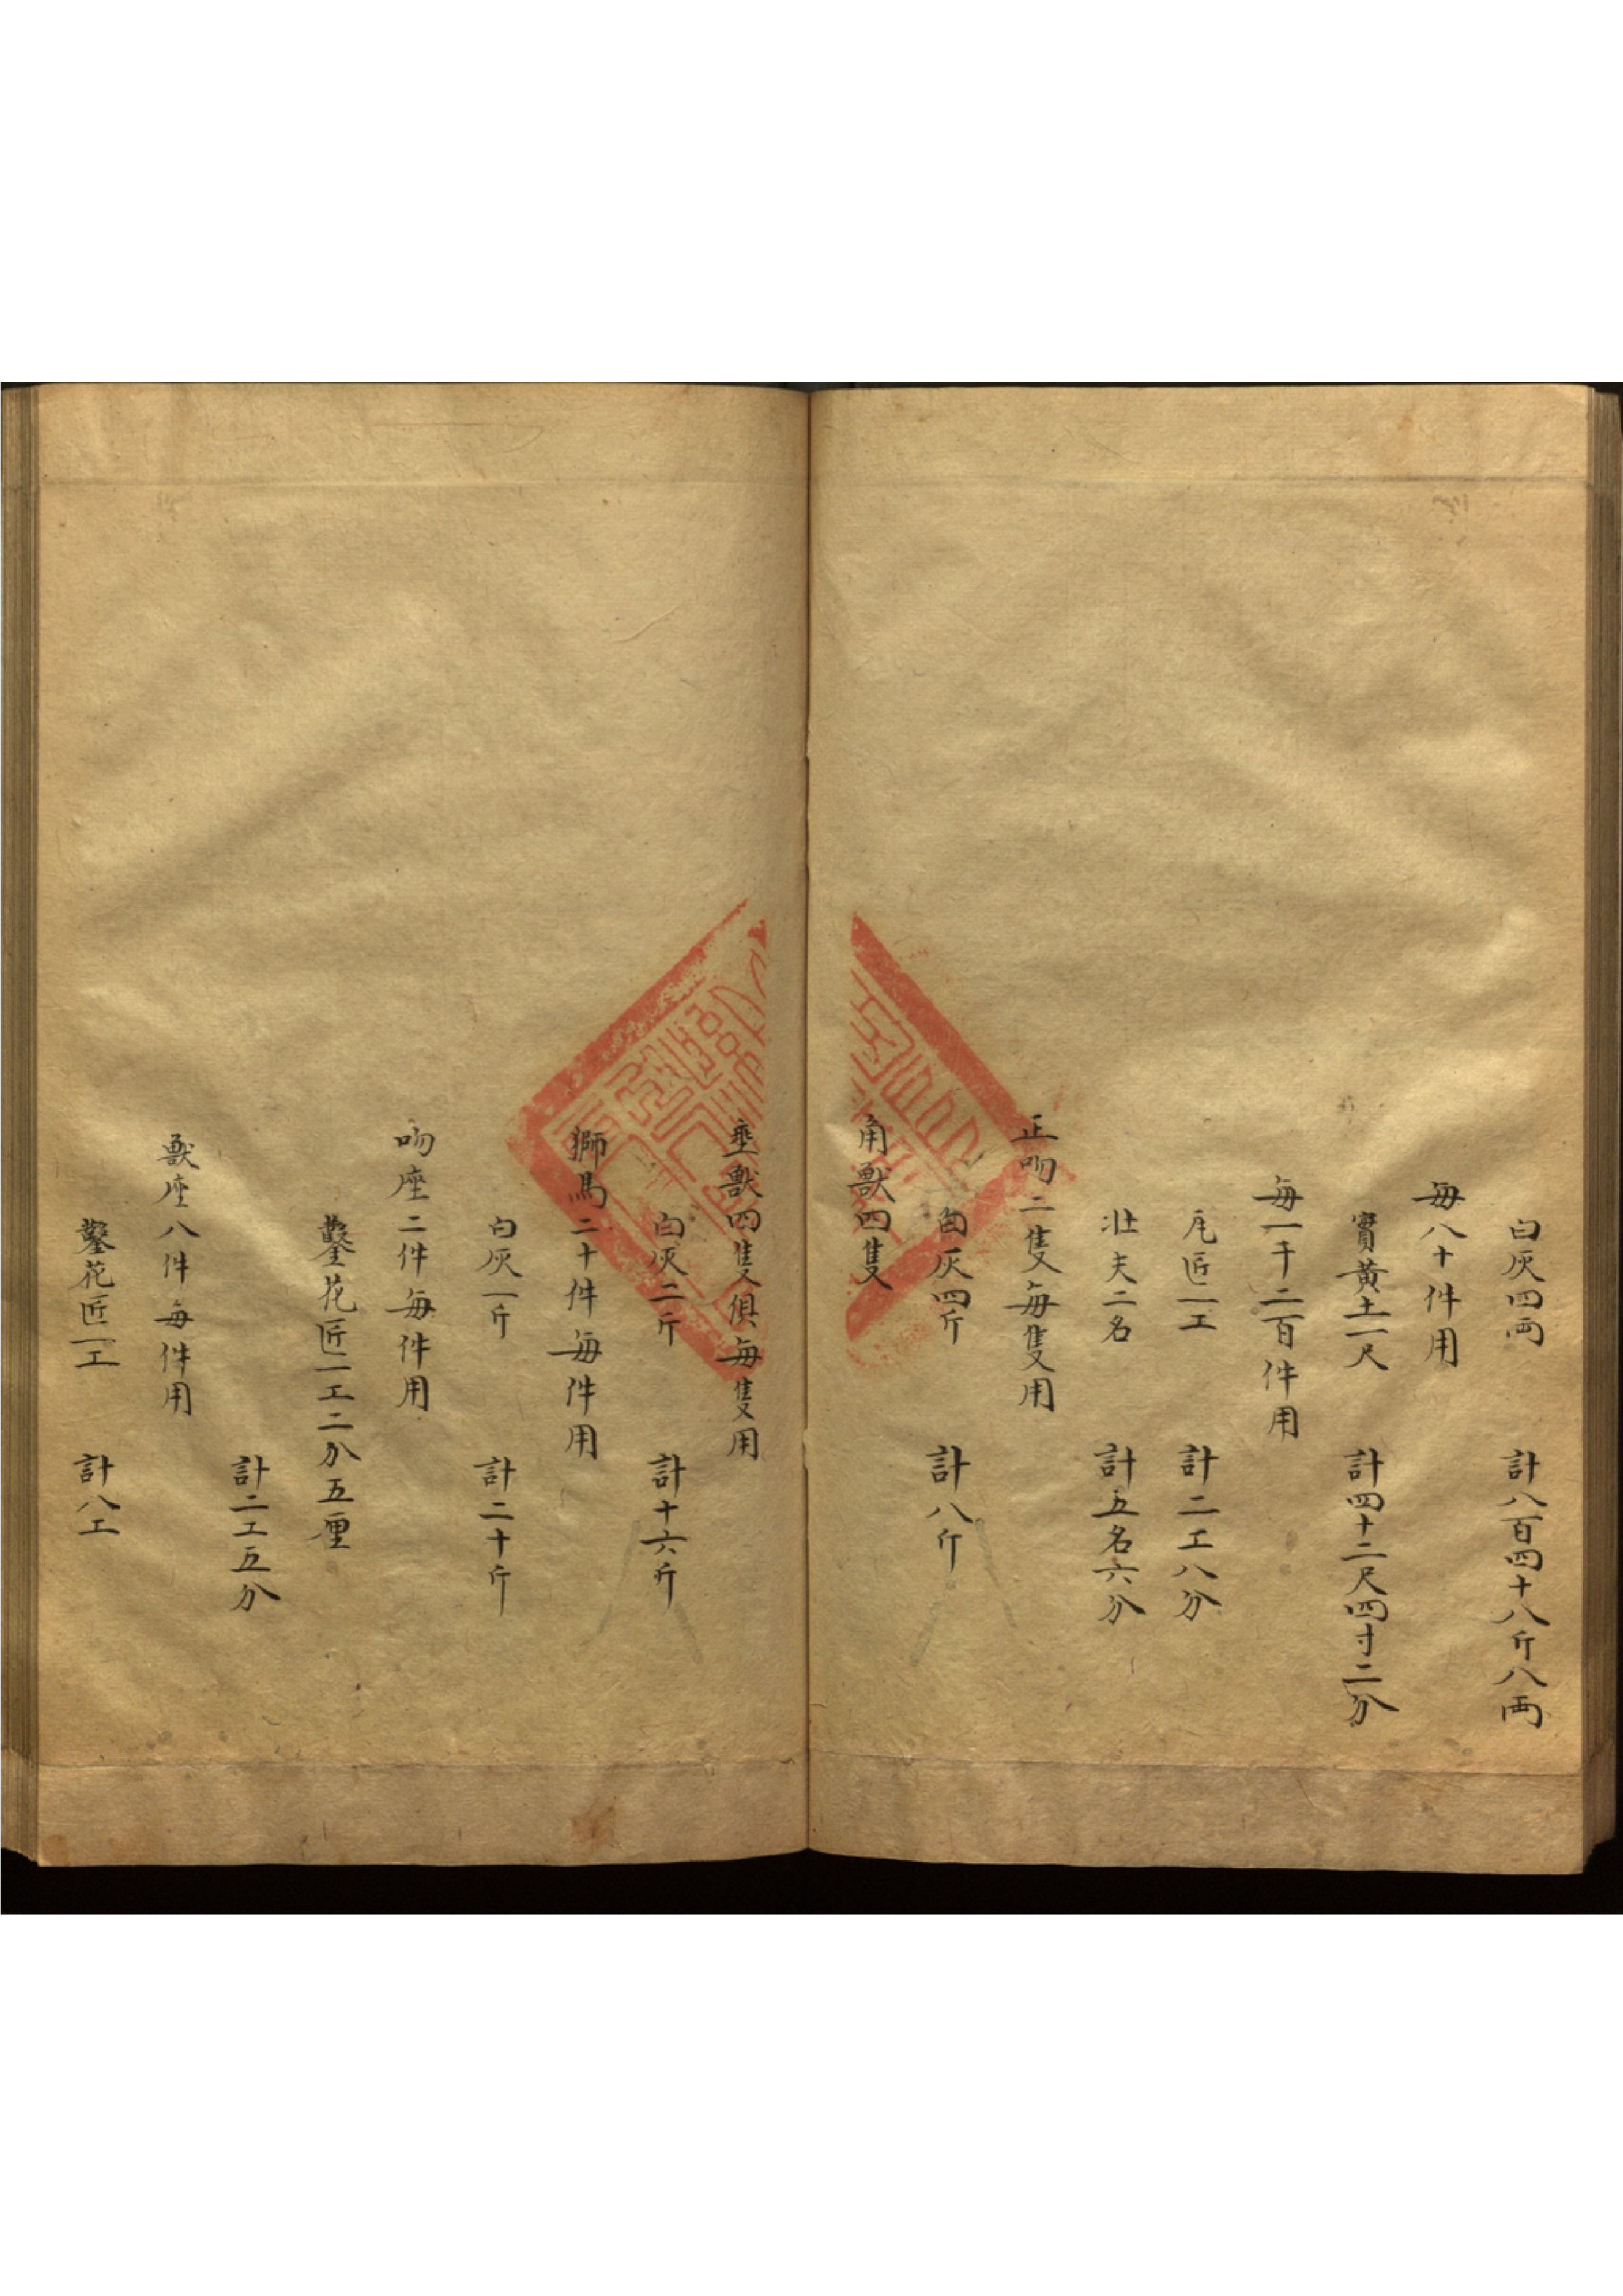 白灰四両　計八百四十八斤八両
毎八十件用
實黄土一尺　計四十二尺四寸二分
毎一千二百件用
瓦匠一工　計二工八分
壮夫二名　計五名六分
正吻二隻毎隻用
白灰四斤　計八斤
角獸四隻
垂獸四隻俱毎隻用
白灰二斤　計十六斤
獅馬二十件毎件用
白灰一斤　計二十斤
吻座二件毎件用
鑿花匠一工二分五厘
計二工五分
獸座八件毎件用
鑿花匠一工　計八工